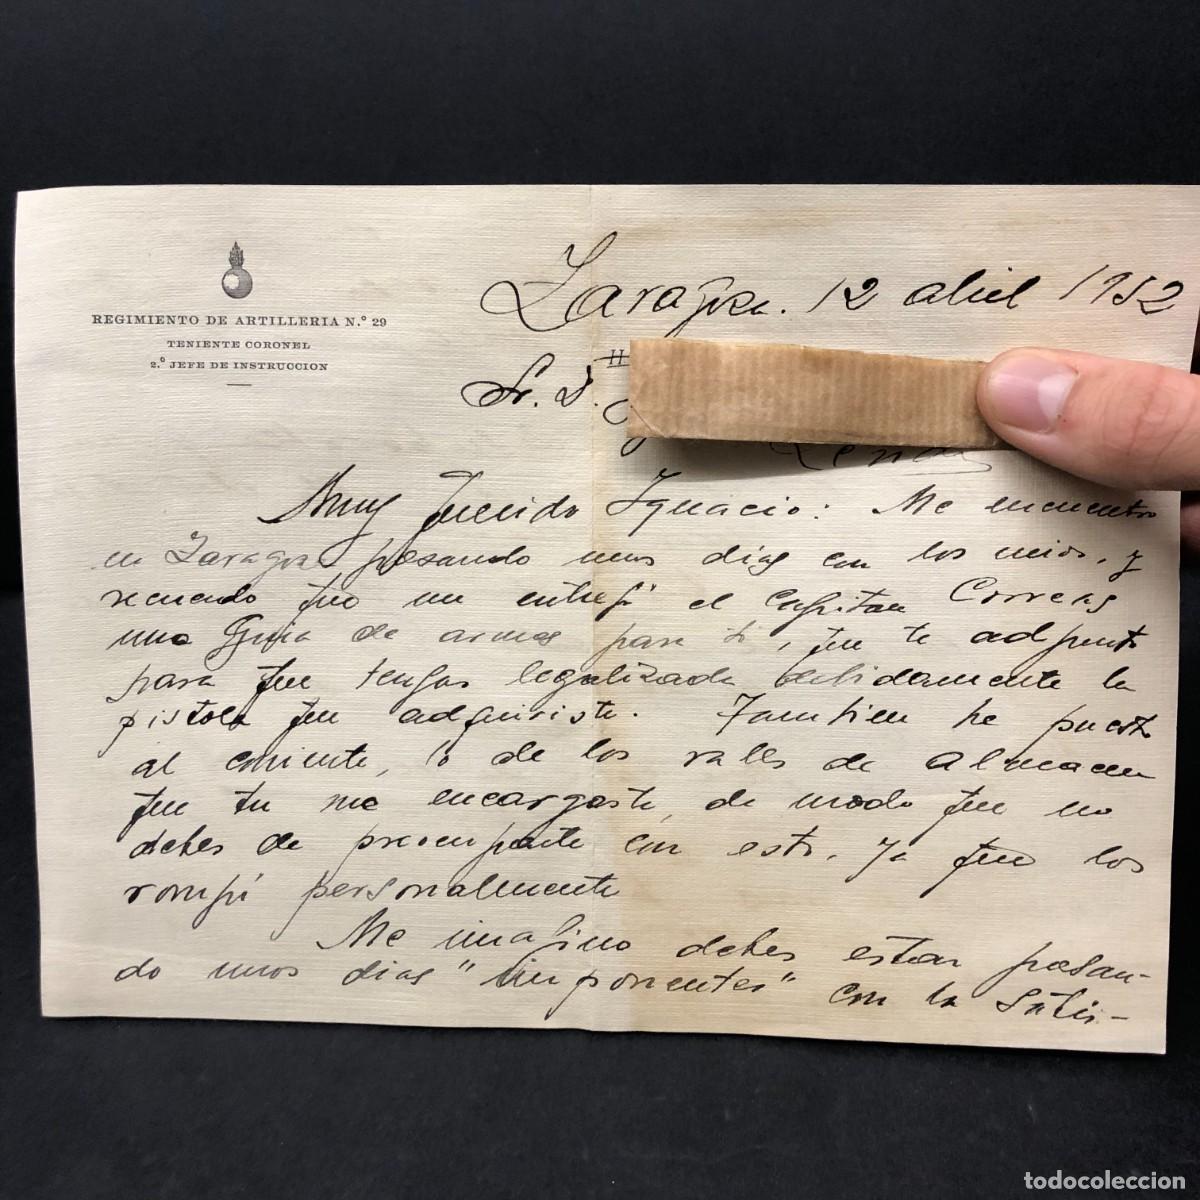 REGIMIENTO DE ARTILLERIA N.º 29
TENIENTE CORONEL
2.º JEFE DE INSTRUCCION
Zaragoza. 12 abril 1952
Sr. D.
Muy querido Ignacio: Me encuentro
en Zaragoza pasando unos dias con los mios, y
recuerdo que no entregé al Capitan Correas
una Guia de armas para ti, que te adjunto
para que tengas legalizada debidamente la
pistola que adquiriste. Tambien he puesto
al corriente, lo de los vales de almacen
que tu me encargaste, de modo que no
debes de preocuparte con esto, ya que los
rompí personalmente
Me imagino debes estar pasan-
do unos dias "imponentes" con la Satis-
todocoleccion